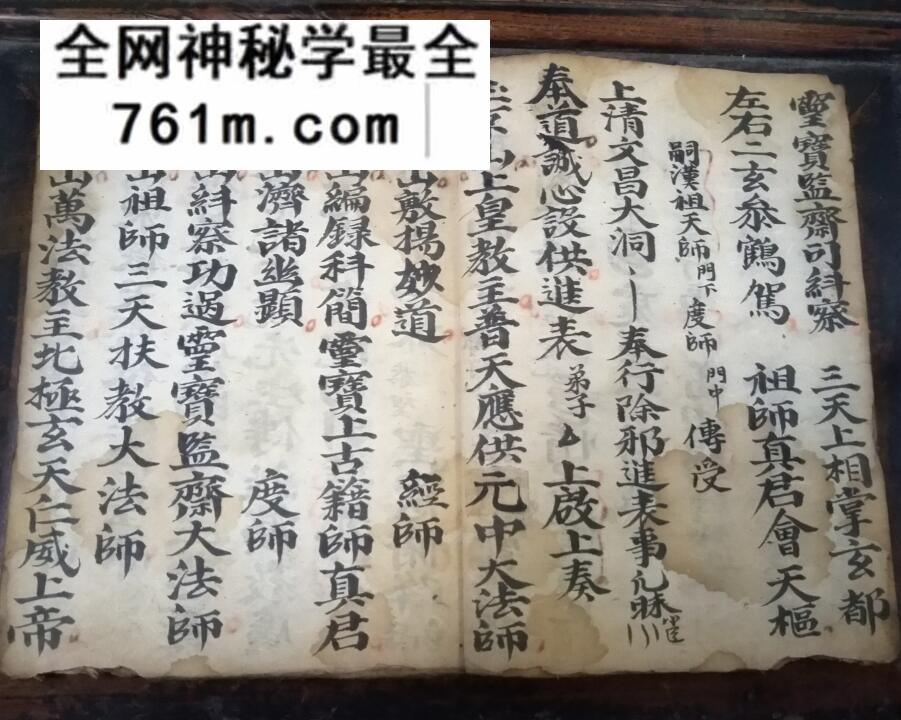 全网神秘学最全
761m.com
靈寶監齋司糾察 三天上相掌玄都
左右二玄叅鶴駕 祖師真君會天樞
嗣漢祖天師門下度師門中傳受
上清文昌大洞 奉行除邪進表事
奉道誠心設供進表弟子 上啟上奏
上皇教主普天應供元中大法師
敷揚妙道 經師
山編録科簡靈寶上古籍師真君
濟諸幽顯 度師
糾察功過靈寶監齋大法師
祖師三天扶教大法師
山萬法教主北極玄天仁威上帝